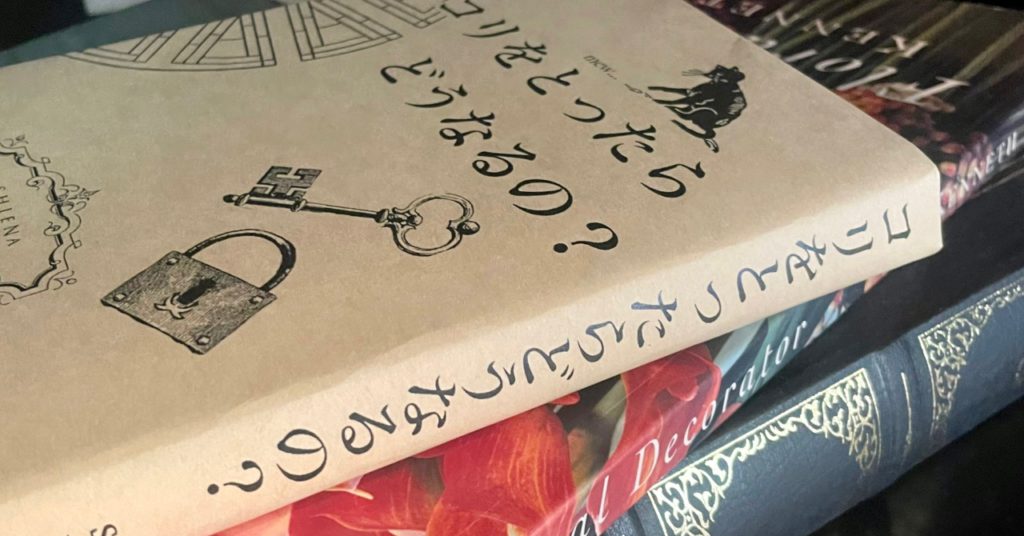 コリをとったら
どうなるの?
SHIENA
コリをとったらどうなるの?
Decorator
KENNETH